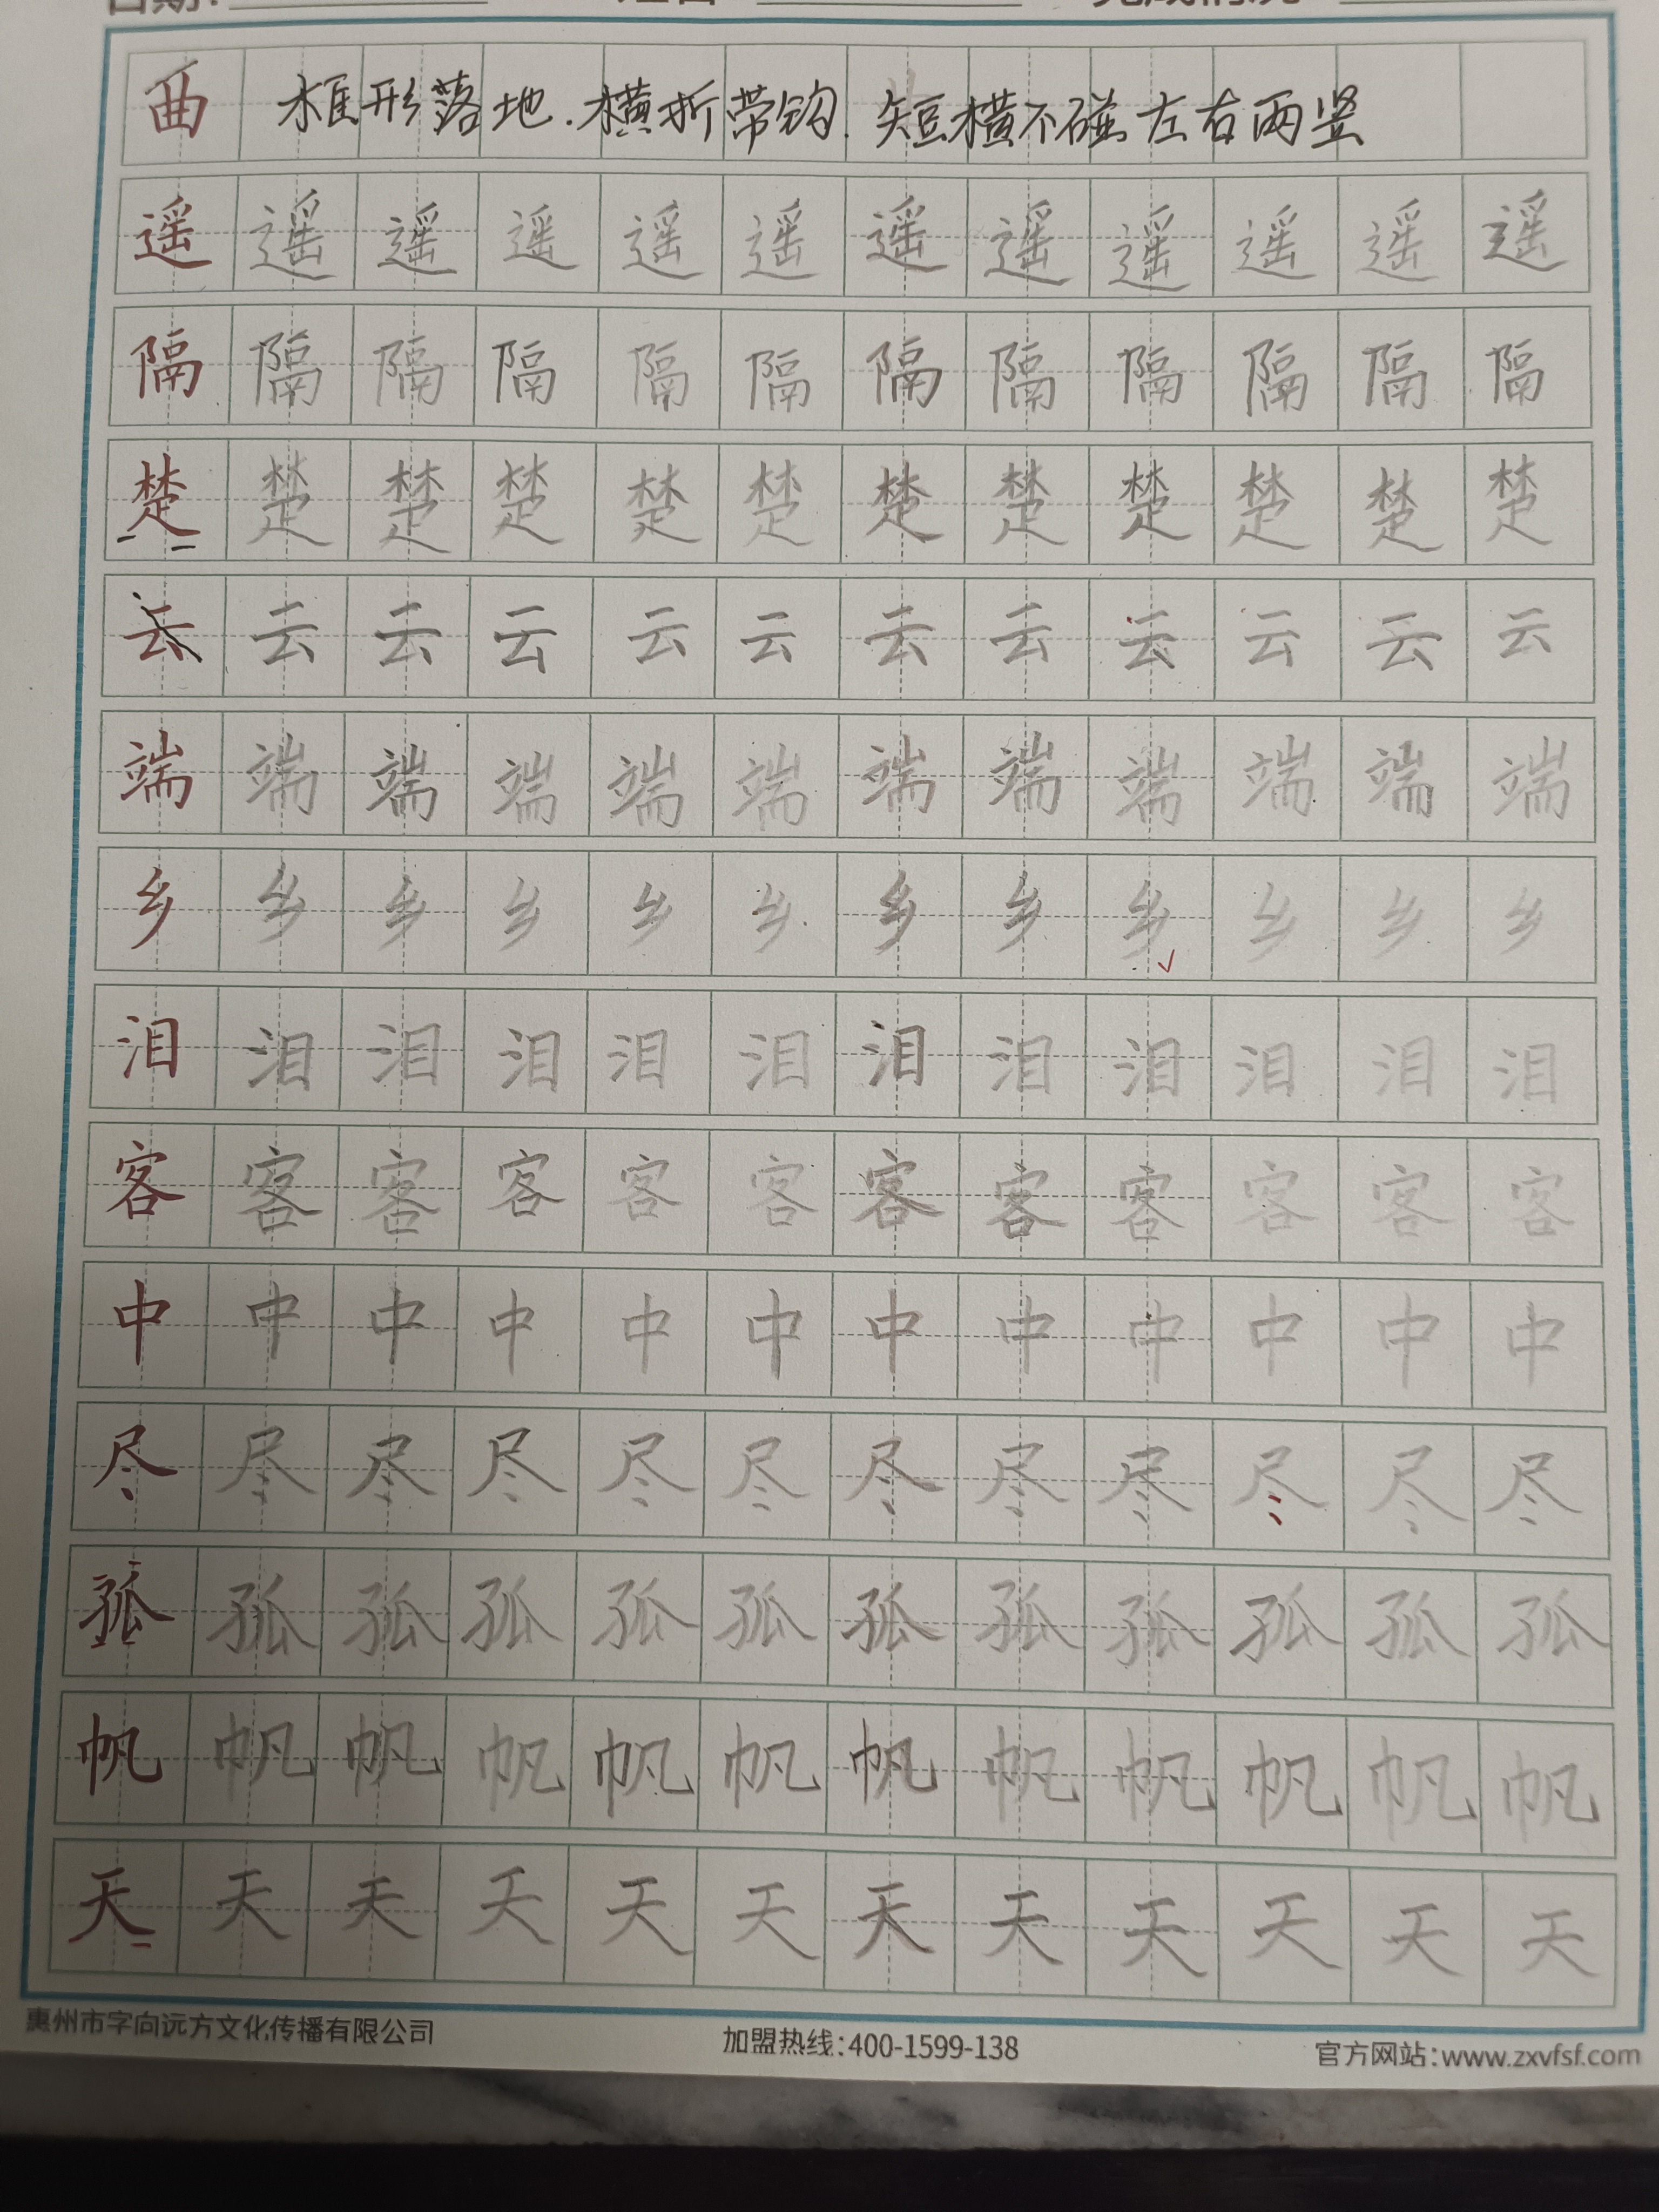 曲 框形落地.横折带钩.短横不碰左右两竖
遥 遥 遥 遥 遥 遥 遥 遥 遥 遥 遥 遥
隔 隔 隔 隔 隔 隔 隔 隔 隔 隔 隔 隔
楚 楚 楚 楚 楚 楚 楚 楚 楚 楚 楚 楚
云 云 云 云 云 云 云 云 云 云 云 云
端 端 端 端 端 端 端 端 端 端 端 端
乡 乡 乡 乡 乡 乡 乡 乡 乡 乡 乡 乡
泪 泪 泪 泪 泪 泪 泪 泪 泪 泪 泪 泪
客 客 客 客 客 客 客 客 客 客 客 客
中 中 中 中 中 中 中 中 中 中 中 中
尽 尽 尽 尽 尽 尽 尽 尽 尽 尽 尽 尽
孤 孤 孤 孤 孤 孤 孤 孤 孤 孤 孤 孤
帆 帆 帆 帆 帆 帆 帆 帆 帆 帆 帆 帆
天 天 天 天 天 天 天 天 天 天 天 天
惠州市字向远方文化传播有限公司 加盟热线:400-1599-138 官方网站:www.zxvfsf.com